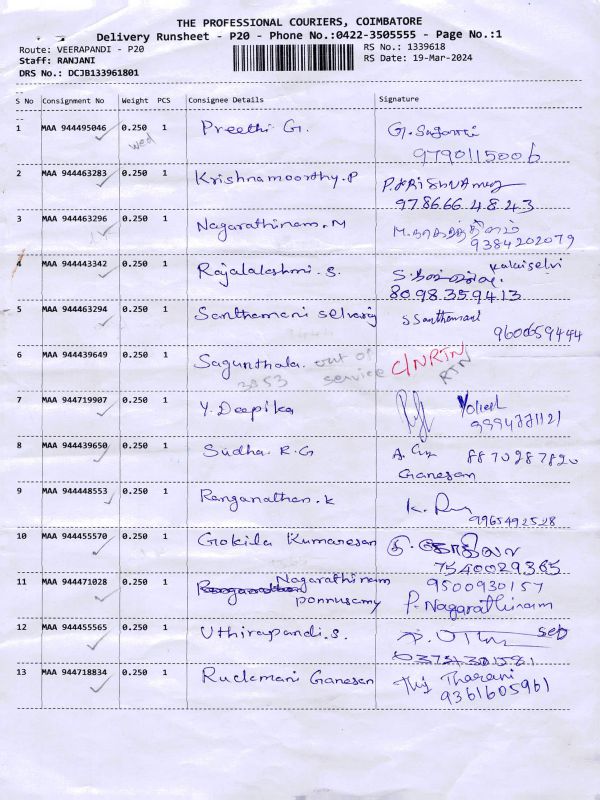 THE PROFESSIONAL COURIERS, COIMBATORE
Delivery Runsheet - P20 - Phone No.:0422-3505555 - Page No.:1
Route: VEERAPANDI - P20
RS No.: 1339618
Staff: RANJANI
RS Date: 19-Mar-2024
DRS No.: DCJB133961801
S No Consignment No Weight PCS Consignee Details Signature
1 MAA 944495046 0.250 1 Preethi G.
wed
9790115006
2 MAA 944463283 0.250 1 Krishnamoorthy.P
978666 4843
3 MAA 944463296 0.250 1 Nagarathinam.M M.நாகரத்தினம்
9384202079
4 MAA 944443342 0.250 1 Rajalakshmi.S. kalaiselvi
8098359413
5 MAA 944463294 0.250 1 Santhamani Selvaraj S Santhamani
9600659444
6 MAA 944439649 0.250 1 Sagunthala. out of service C/NRTN
3053 RTN
7 MAA 944719907 0.250 1 Y.Deepika
8 MAA 944439650 0.250 1 Sudha R.G 8870287820
Ganesan
9 MAA 944448553 0.250 1 Ranganathan.K
9965492528
10 MAA 944455570 0.250 1 Gokila Kumaresan
7540029365
11 MAA 944471028 0.250 1 Nagarathinam 9500930157
ponnusamy P. Nagarathinam
12 MAA 944455565 0.250 1 Uthirapandi.S.
13 MAA 944718834 0.250 1 Rukmani Ganesan Tharani
9361605961